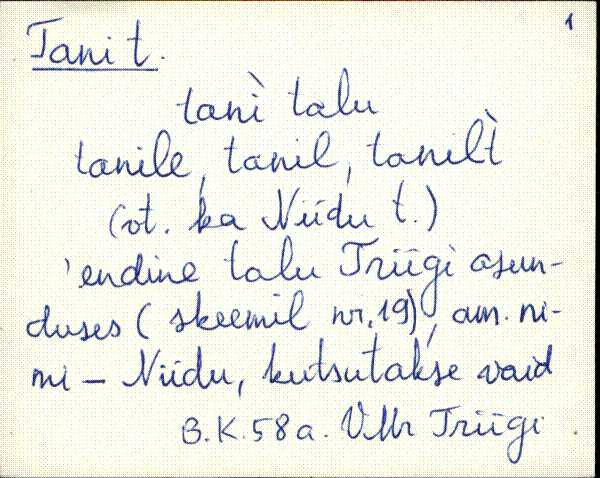 1
Tani t.
tanì talu
tanile, tanil, tanilt̀
(vt. ka Niidu t.)
'endine talu Triigi asun-
duses (skeemil nr. 19), am. ni-
mi – Niidu, kutsutakse vaid
B.K. 58 a. VMr Triigi